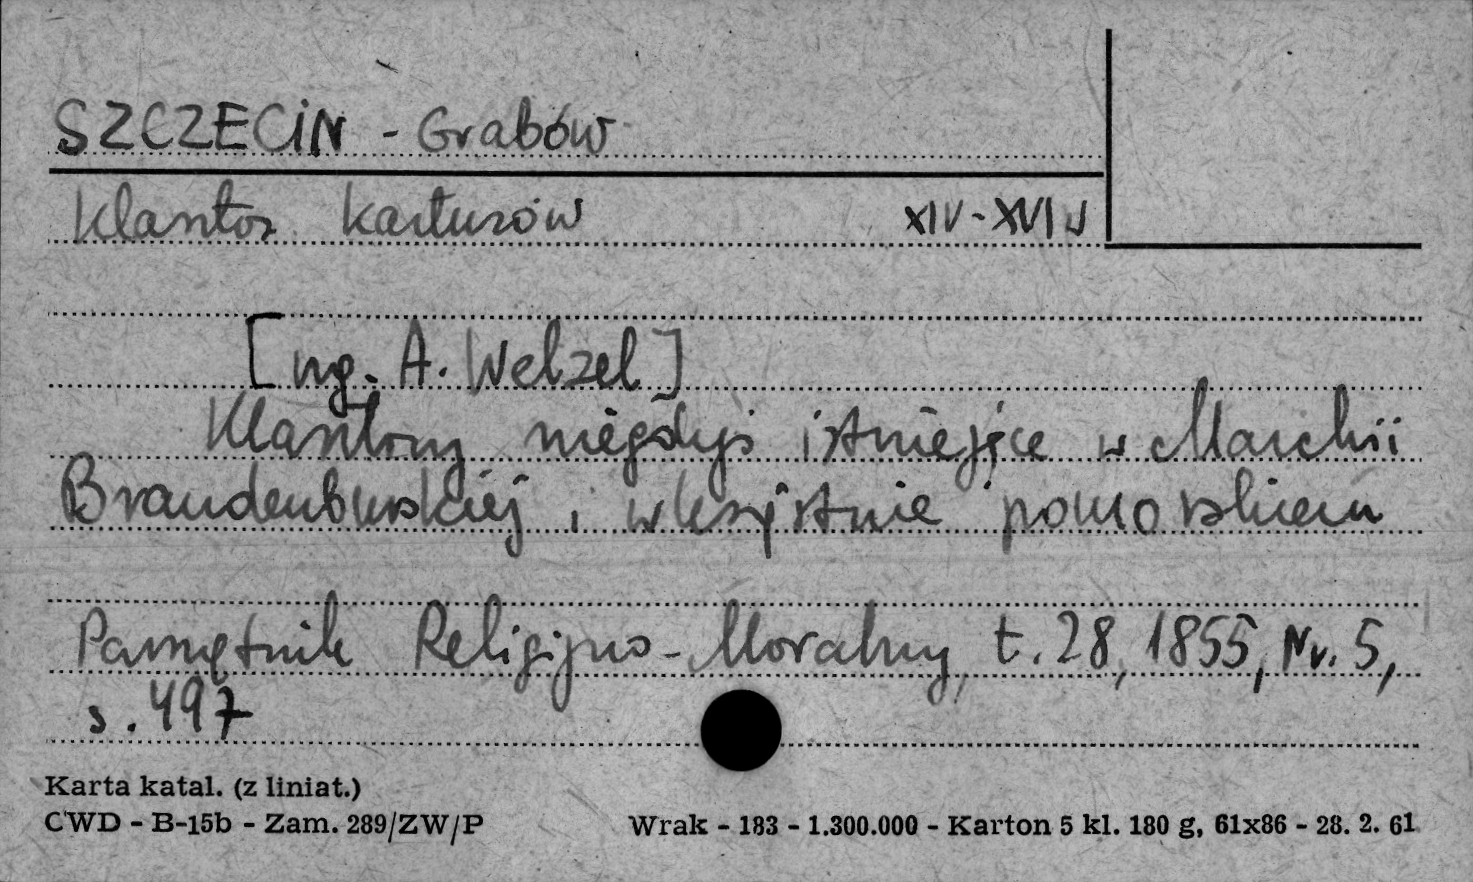 SZCZECIN - Grabów
Klasztor kartuzów XIV-XVI w
[ng. A. Welzel]
Klasztory niegdyś istniejące w Marchii
Brandenburskiej i w księstwie pomorskiem
Pamiętnik Religijno-Moralny, t. 28, 1855, Nr. 5,
s. 497
Karta katal. (z liniat.)
CWD - B-15b - Zam. 289/ZW/P Wrak - 183 - 1.300.000 - Karton 5 kl. 180 g, 61x86 - 28. 2. 61